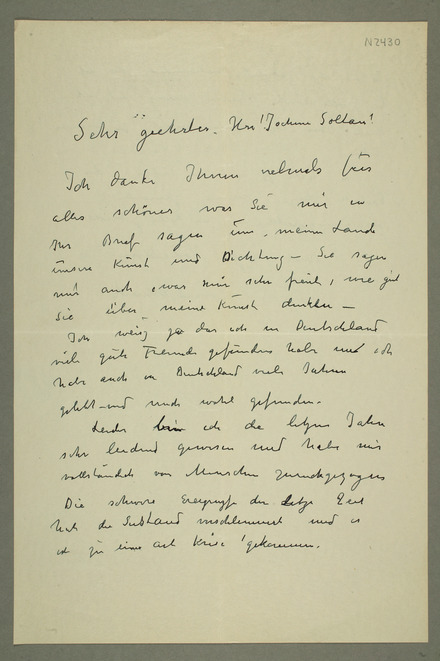 N 2430
Sehr geehrter Herr Jochum Soltau!
Ich danke Ihnen vielmals für
alles schönes was Sie mir in
Ihr Brief sagen über meine Lande
unsere Kunst und Dichtung – Sie sagen
mir auch, was mir sehr freut, wie gut
Sie über meine Kunst denken –
Ich weiss ja das ich in Deutschland
viele gute Freunde gefunden habe und ich
habe auch in Deutschland viele Jahren
gelebt – und mich wohl gefunden.
Leider bin ich die letzten Jahre
sehr leidend gewesen und habe mir
vollständich von Menschen zurückgezogen
Die schwere der letzte Zeit
hat die verschlimmert und es
ist zu eine art Krise gekommen.